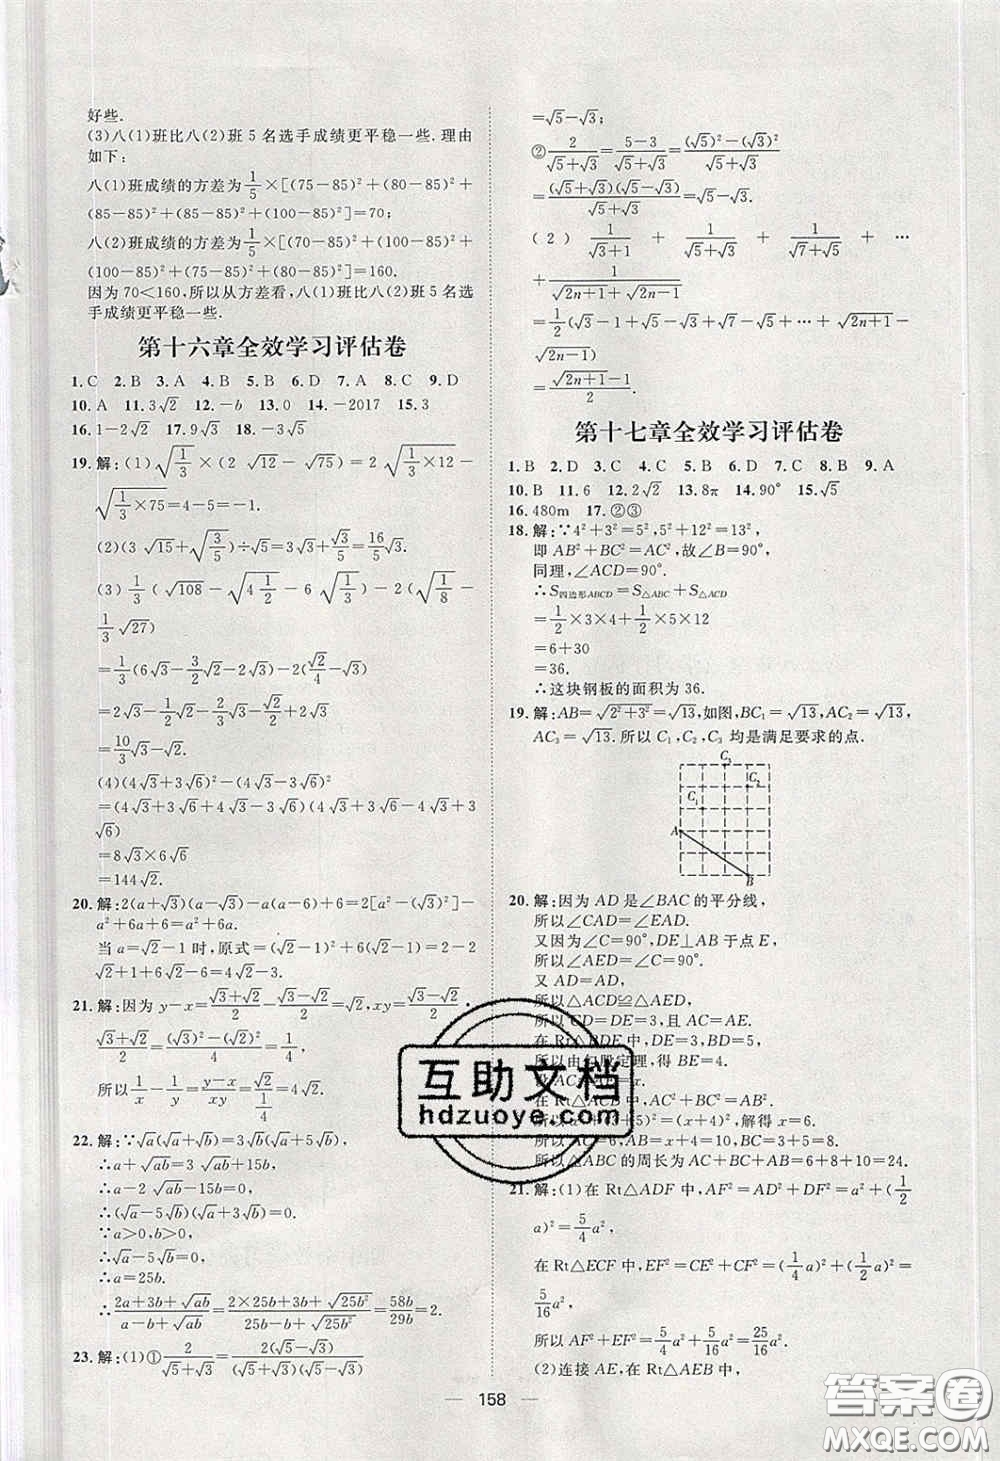 好些.
(3)八(1)班比八(2)班5名选手成绩更平稳一些.理由
如下:
八(1)班成绩的方差为1/5×[(75-85)²+(80-85)²+
(85-85)²+(85-85)²+(100-85)²]=70;
八(2)班成绩的方差为1/5×[(70-85)²+(100-85)²+
(100-85)²+(75-85)²+(80-85)²]=160.
因为70<160,所以从方差看,八(1)班比八(2)班5名选
手成绩更平稳一些.
第十六章全效学习评估卷
1.C 2.B 3.A 4.B 5.B 6.D 7.A 8.C 9.D
10.A 11.3√2 12.-b 13.0 14.-2017 15.3
16.1-2√2 17.9√3 18.-3√5
19.解:(1)√(1/3)×(2√12-√75)=2√(1/3×12)-
√(1/3×75)=4-5=-1.
(2)(3√15+√(3/5))÷√5=3√3+1/5√3=16/5√3.
(3)1/3(√108-√(4 1/2)-6√(1/3))-(√(1/8)-
1/3√27)
=1/3(6√3-3/2√2-2√3)-(√2/4-√3)
=2√3-√2/2-2/3√3-√2/4-√2/4+√3
=10/3√3-√2.
(4)(4√3+3√6)²-(4√3-3√6)²
=(4√3+3√6+4√3-3√6)(4√3+3√6-4√3+3
√6)
=8√3×6√6
=144√2.
20.解:2(a+√3)(a-√3)-a(a-6)+6=2[a²-(√3)²]-
a²+6a+6=a²+6a.
当a=√2-1时,原式=(√2-1)²+6(√2-1)=2-2
√2+1+6√2-6=4√2-3.
21.解:因为y-x=(√3+√2)/2-(√3-√2)/2=√2,xy=(√3-√2)/2·
(√3+√2)/2=((√3)²-(√2)²)/4=1/4,
所以1/x-1/y=(y-x)/xy=√2/(1/4)=4√2.
22.解:∵√a(√a+√b)=3√b(√a+5√b),
∴a+√ab=3√ab+15b,
∴a-2√ab-15b=0.
∴(√a-5√b)(√a+3√b)=0.
∵a>0,b>0,
∴√a-5√b=0,
∴a=25b.
∴(2a+3b+√ab)/(a-b+√ab)=(2×25b+3b+√25b²)/(25b-b+√25b²)=58b/29b=2.
23.解:(1)①2/(√5+√3)=2(√5-√3)/((√5+√3)(√5-√3))
=√5-√3;
②2/(√5+√3)=(5-3)/(√5+√3)=((√5)²-(√3)²)/(√5+√3)
=(√5+√3)(√5-√3)/(√5+√3)=√5-√3.
(2)1/(√3+1)+1/(√5+√3)+1/(√7+√5)+…
+1/(√2n+1+√2n-1)
=1/2(√3-1+√5-√3+√7-√5+…+√2n+1-
√2n-1)
=(√2n+1-1)/2.
第十七章全效学习评估卷
1.B 2.D 3.C 4.C 5.B 6.D 7.C 8.B 9.A
10.B 11.6 12.2√2 13.8π 14.90° 15.√5
16.480m 17.②③
18.解:∵4²+3²=5²,5²+12²=13²,
即AB²+BC²=AC²,故∠B=90°,
同理,∠ACD=90°.
∴S四边形ABCD=S△ABC+S△ACD
=1/2×3×4+1/2×5×12
=6+30
=36.
∴这块钢板的面积为36.
19.解:AB=√(2²+3²)=√13,如图,BC₁=√13,AC₂=√13,
AC₃=√13.所以C₁,C₂,C₃均是满足要求的点.
C₃
C₂
C₁
A
B
20.解:因为AD是∠BAC的平分线,
所以∠CAD=∠EAD.
又因为∠C=90°,DE⊥AB于点E,
所以∠AED=∠C=90°.
又AD=AD,
所以△ACD≌△AED,
所以CD=DE=3,且AC=AE.
在Rt△BDE中,DE=3,BD=5,
所以由勾股定理,得BE=4.
设AC=AE=x.
在Rt△ACB中,AC²+BC²=AB²,
所以x²+(3+5)²=(x+4)²,解得x=6.
所以AC=6,AB=x+4=10,BC=3+5=8.
所以△ABC的周长为AC+BC+AB=6+8+10=24.
21.解:(1)在Rt△ADF中,AF²=AD²+DF²=a²+(1/2
a)²=5/4a²,
在Rt△ECF中,EF²=EC²+CF²=(1/4a)²+(1/2a)²=
5/16a²,
所以AF²+EF²=5/4a²+5/16a²=25/16a².
(2)连接AE,在Rt△AEB中,
158
互助文档
hdzuoye.com
答案圈
MXQE.COM